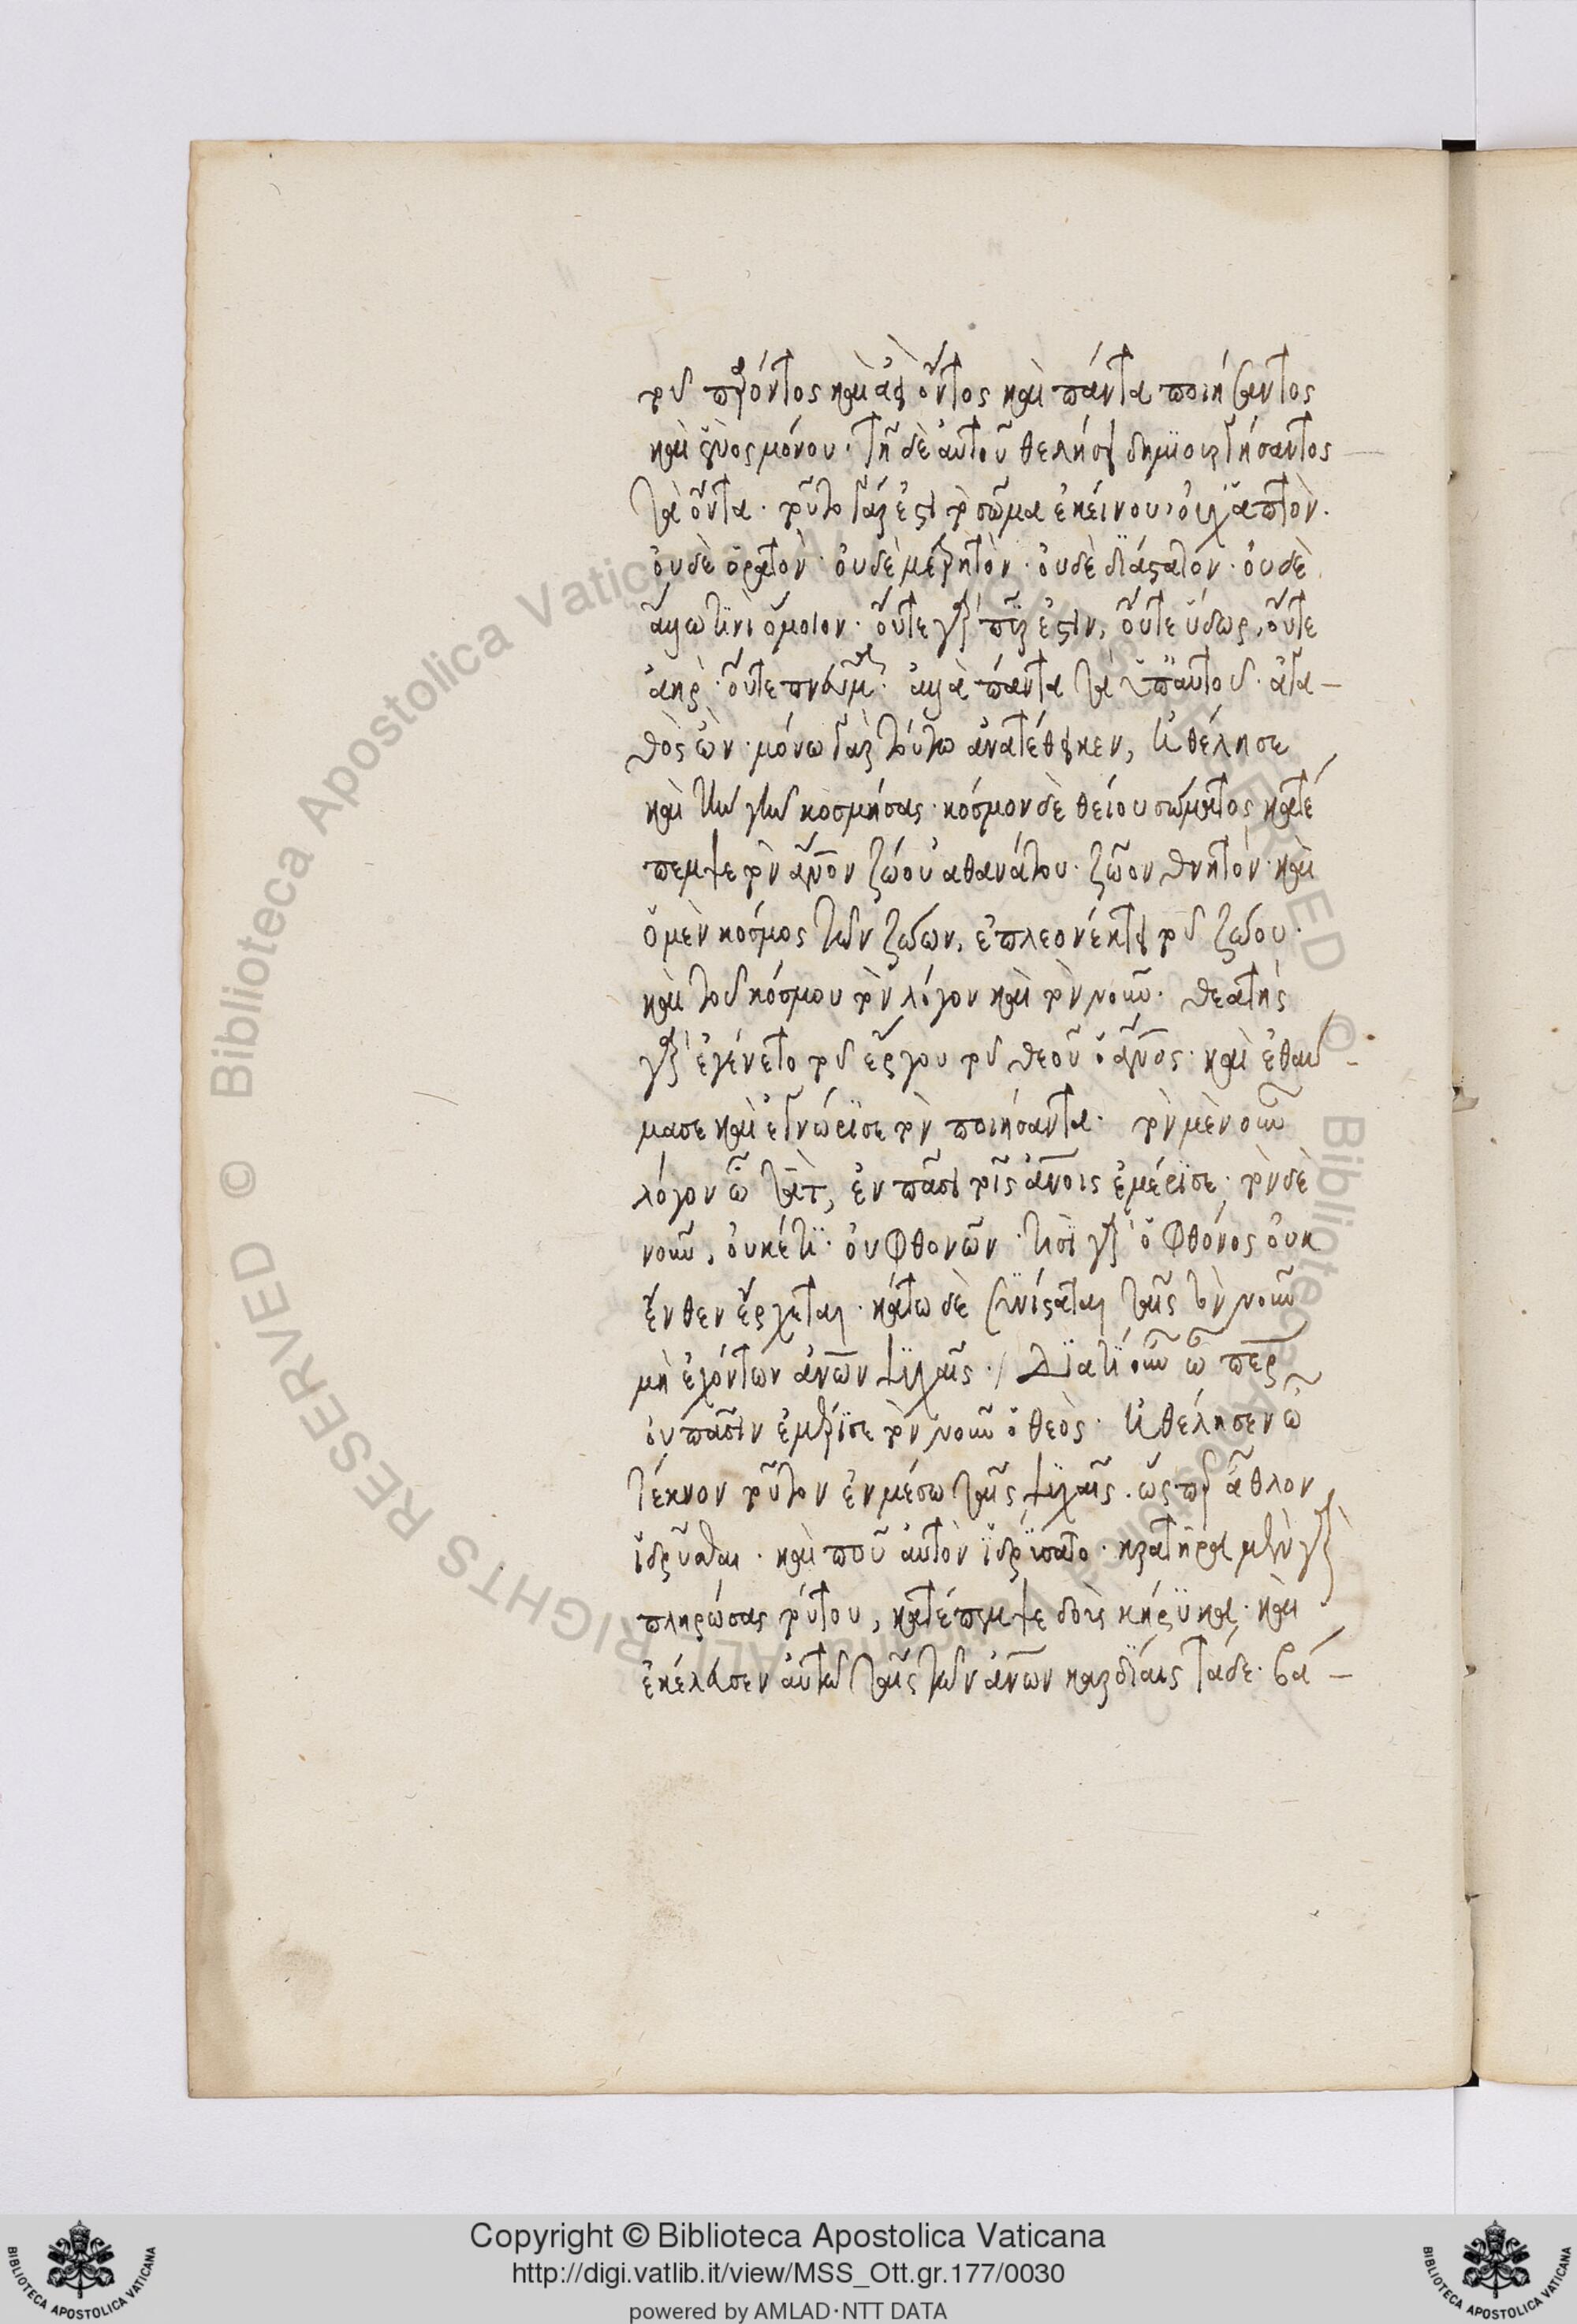 τοῦ παρόντος καὶ ἀεὶ ὄντος καὶ πάντα ποιήσαντος
καὶ ἑνὸς μόνου· τῇ δὲ αὐτοῦ θελήσει δημϊουργήσαντος
τὰ ὄντα· τοῦτο γάρ ἐστι τὸ σῶμα ἐκείνου, οὐχ ἁπτὸν·
οὐδὲ ὁρατὸν· οὐδὲ μετρητὸν· οὐδὲ δϊάστατόν· οὐδὲ
ἄλλω τϊνὶ ὅμοιον· οὔτε γὰρ πῦρ ἐστιν, οὔτε ὕδωρ, οὔτε
ἀὴρ· οὔτε πνεῦμα· ἀλλὰ πάντα τὰ ὑπ' αὐτοῦ· ἀγα-
θὸς ὢν· μόνω γὰρ τούτω ἀνατέθεικεν, ἠθέλησε
καὶ τὴν γῆν κοσμήσας· κόσμον δὲ θείου σώματος κατέ
πεμψε τὸν ἄνον ζώου ἀθανάτου· ζῶον θνητόν· καὶ
ὁ μὲν κόσμος τῶν ζώων, ἐπλεονέκτει τοῦ ζώου·
καὶ τοῦ κόσμου τὸν λόγον καὶ τὸν νοῦν· θεατὴς
γὰρ ἐγένετο τοῦ ἔργου τοῦ θεοῦ ὁ ἄνος· καὶ ἐθαύ-
μασε καὶ ἐγνώρϊσε τὸν ποιήσαντα· τὸν μὲν οὖν
λόγον ὦ τὰτ, ἐν πᾶσι τοῖς ἀνοις ἐμέρϊσε· τὸν δὲ
νοῦν, οὐκέτϊ· οὐ φθονῶν τισϊ γὰρ ὁ φθόνος οὐκ
ἔνθεν ἔρχεται· κάτω δὲ συνίσταται ταῖς τὸν νοῦν
μὴ ἐχόντων ἀνων ψϋχαῖς·/ Δϊατί οὖν ὦ περ
οὐ πᾶσιν ἐμέρϊσε τὸν νοῦν ὁ θεὸς· ἠθέλησεν ὦ
τέκνον τοῦτον ἐν μέσω ταῖς ψϋχαῖς· ὥσπερ ἆθλον
ἱδρῦσθαι· καὶ ποῦ αὐτὸν ἱδρύσατο· κρατῆρα μέγαν
πληρώσας τούτου, κατέπεμψε δοὺς κήρϋκα· καὶ
ἐκέλευσεν αὐτῶ ταῖς τῶν ἀνων καρδίαις τάδε· βά-
Copyright © Biblioteca Apostolica Vaticana
http://digi.vatlib.it/view/MSS_Ott.gr.177/0030
powered by AMLAD·NTT DATA